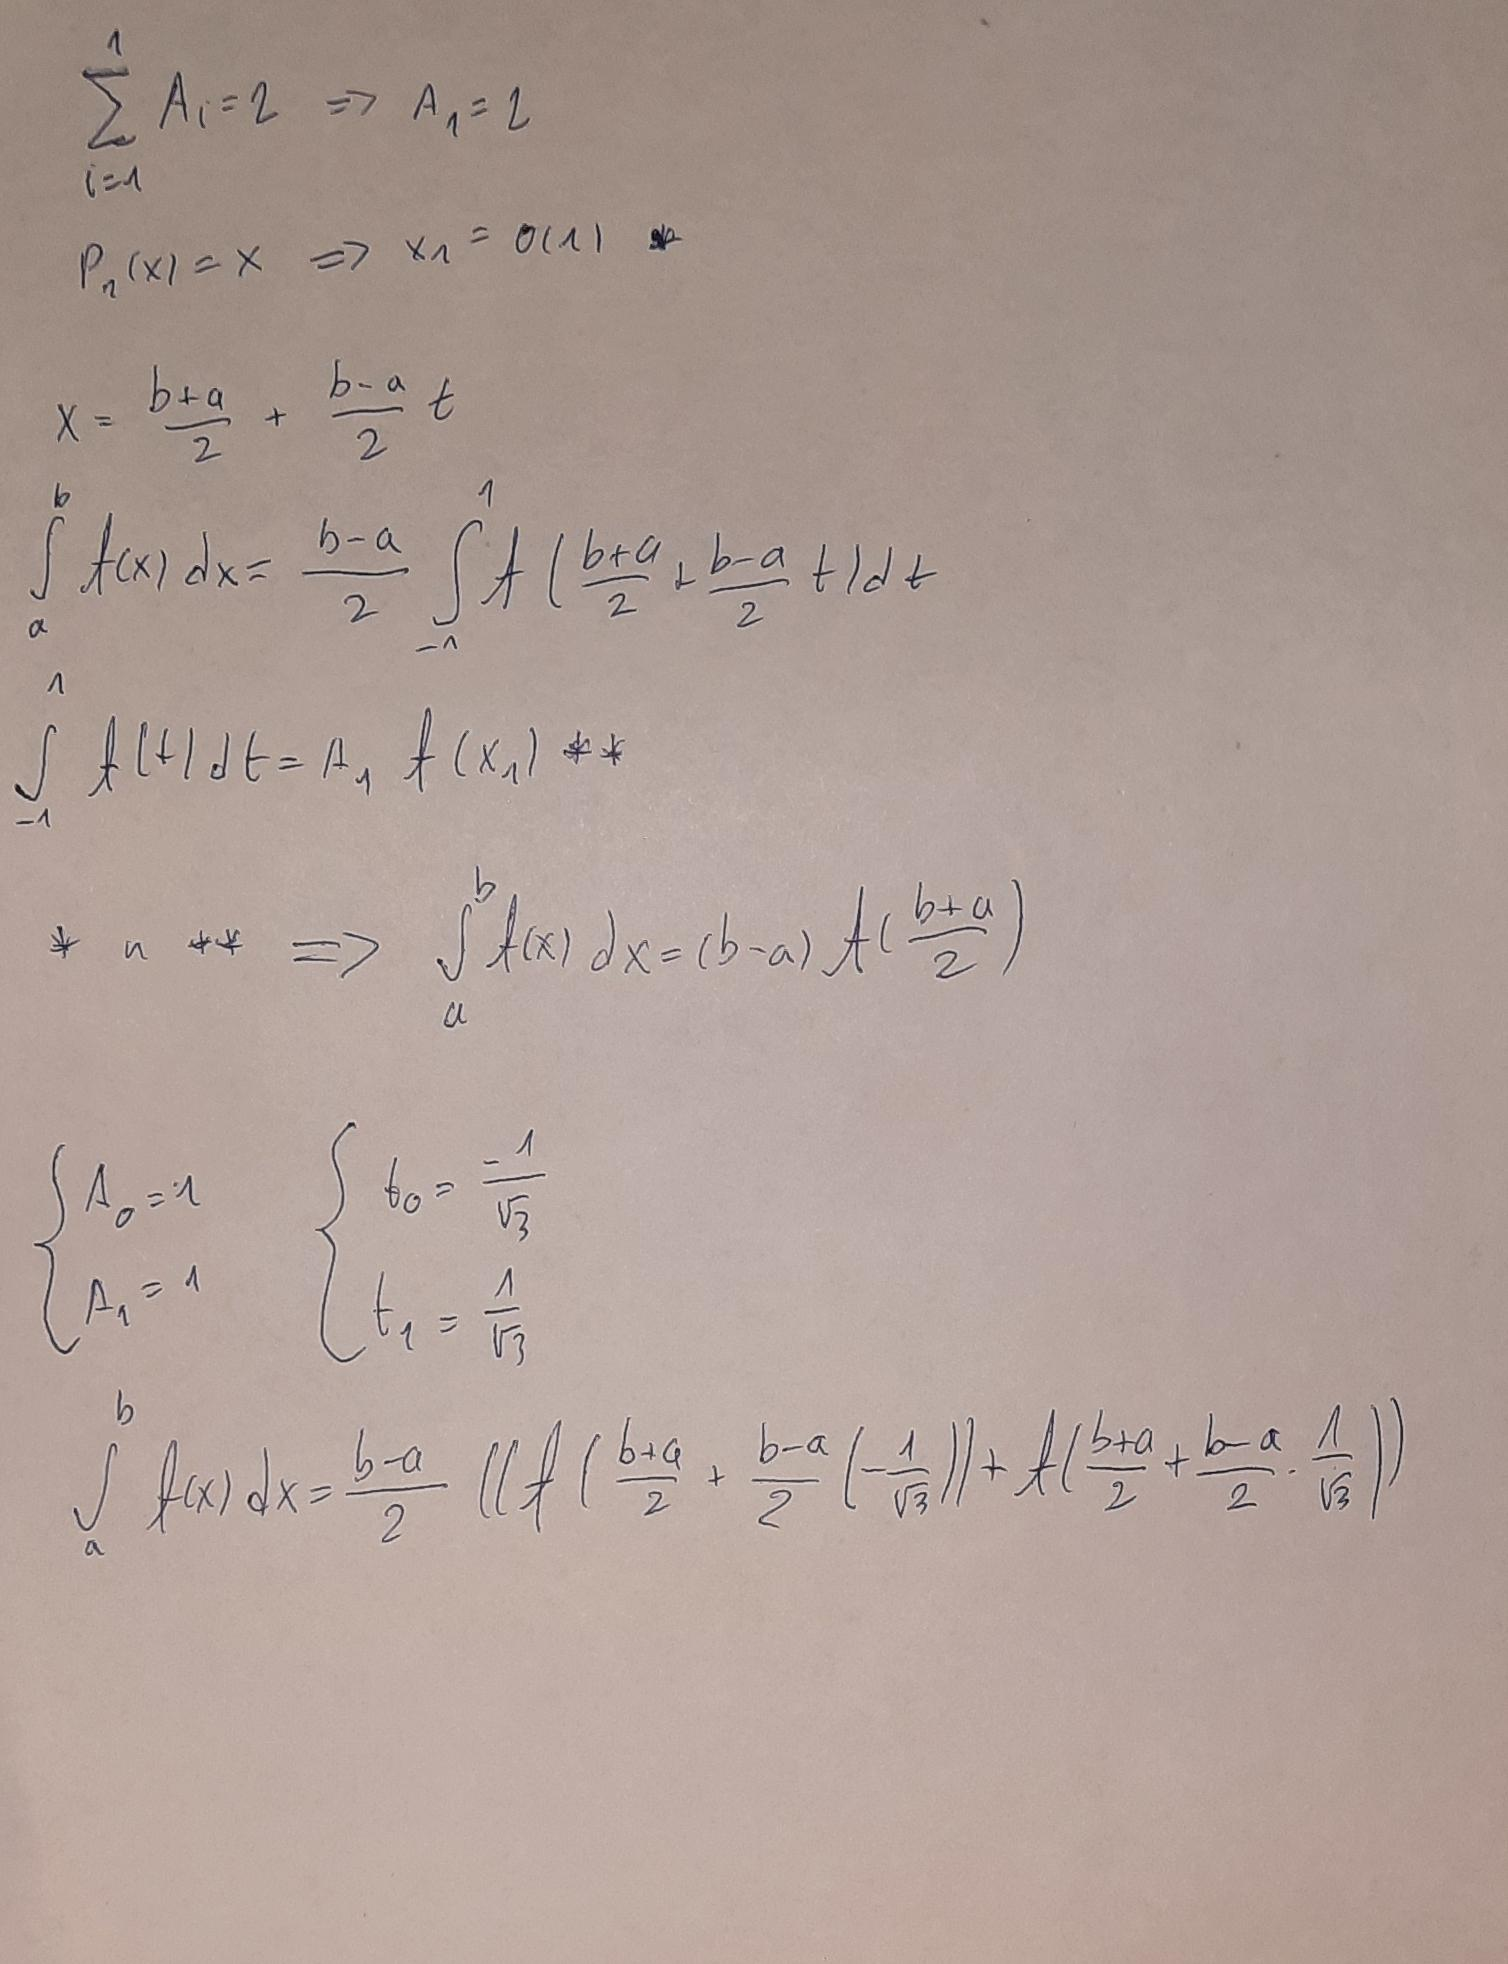 \sum_{i=1}^{1} A_i = 2 => A_1 = 2
P_1(x) = x => x_1 = 0(1) *
x = \frac{b+a}{2} + \frac{b-a}{2} t
\int_a^b f(x) dx = \frac{b-a}{2} \int_{-1}^{1} f(\frac{b+a}{2} + \frac{b-a}{2} t) dt
\int_{-1}^{1} f(t) dt = A_1 f(x_1) **
* и ** => \int_a^b f(x) dx = (b-a) f(\frac{b+a}{2})
{ A_0 = 1 A_1 = 1 { t_0 = \frac{-1}{\sqrt{3}} t_1 = \frac{1}{\sqrt{3}}
\int_a^b f(x) dx = \frac{b-a}{2} ((f(\frac{b+a}{2} + \frac{b-a}{2} (-\frac{1}{\sqrt{3}})) + f(\frac{b+a}{2} + \frac{b-a}{2} \cdot \frac{1}{\sqrt{3}}))